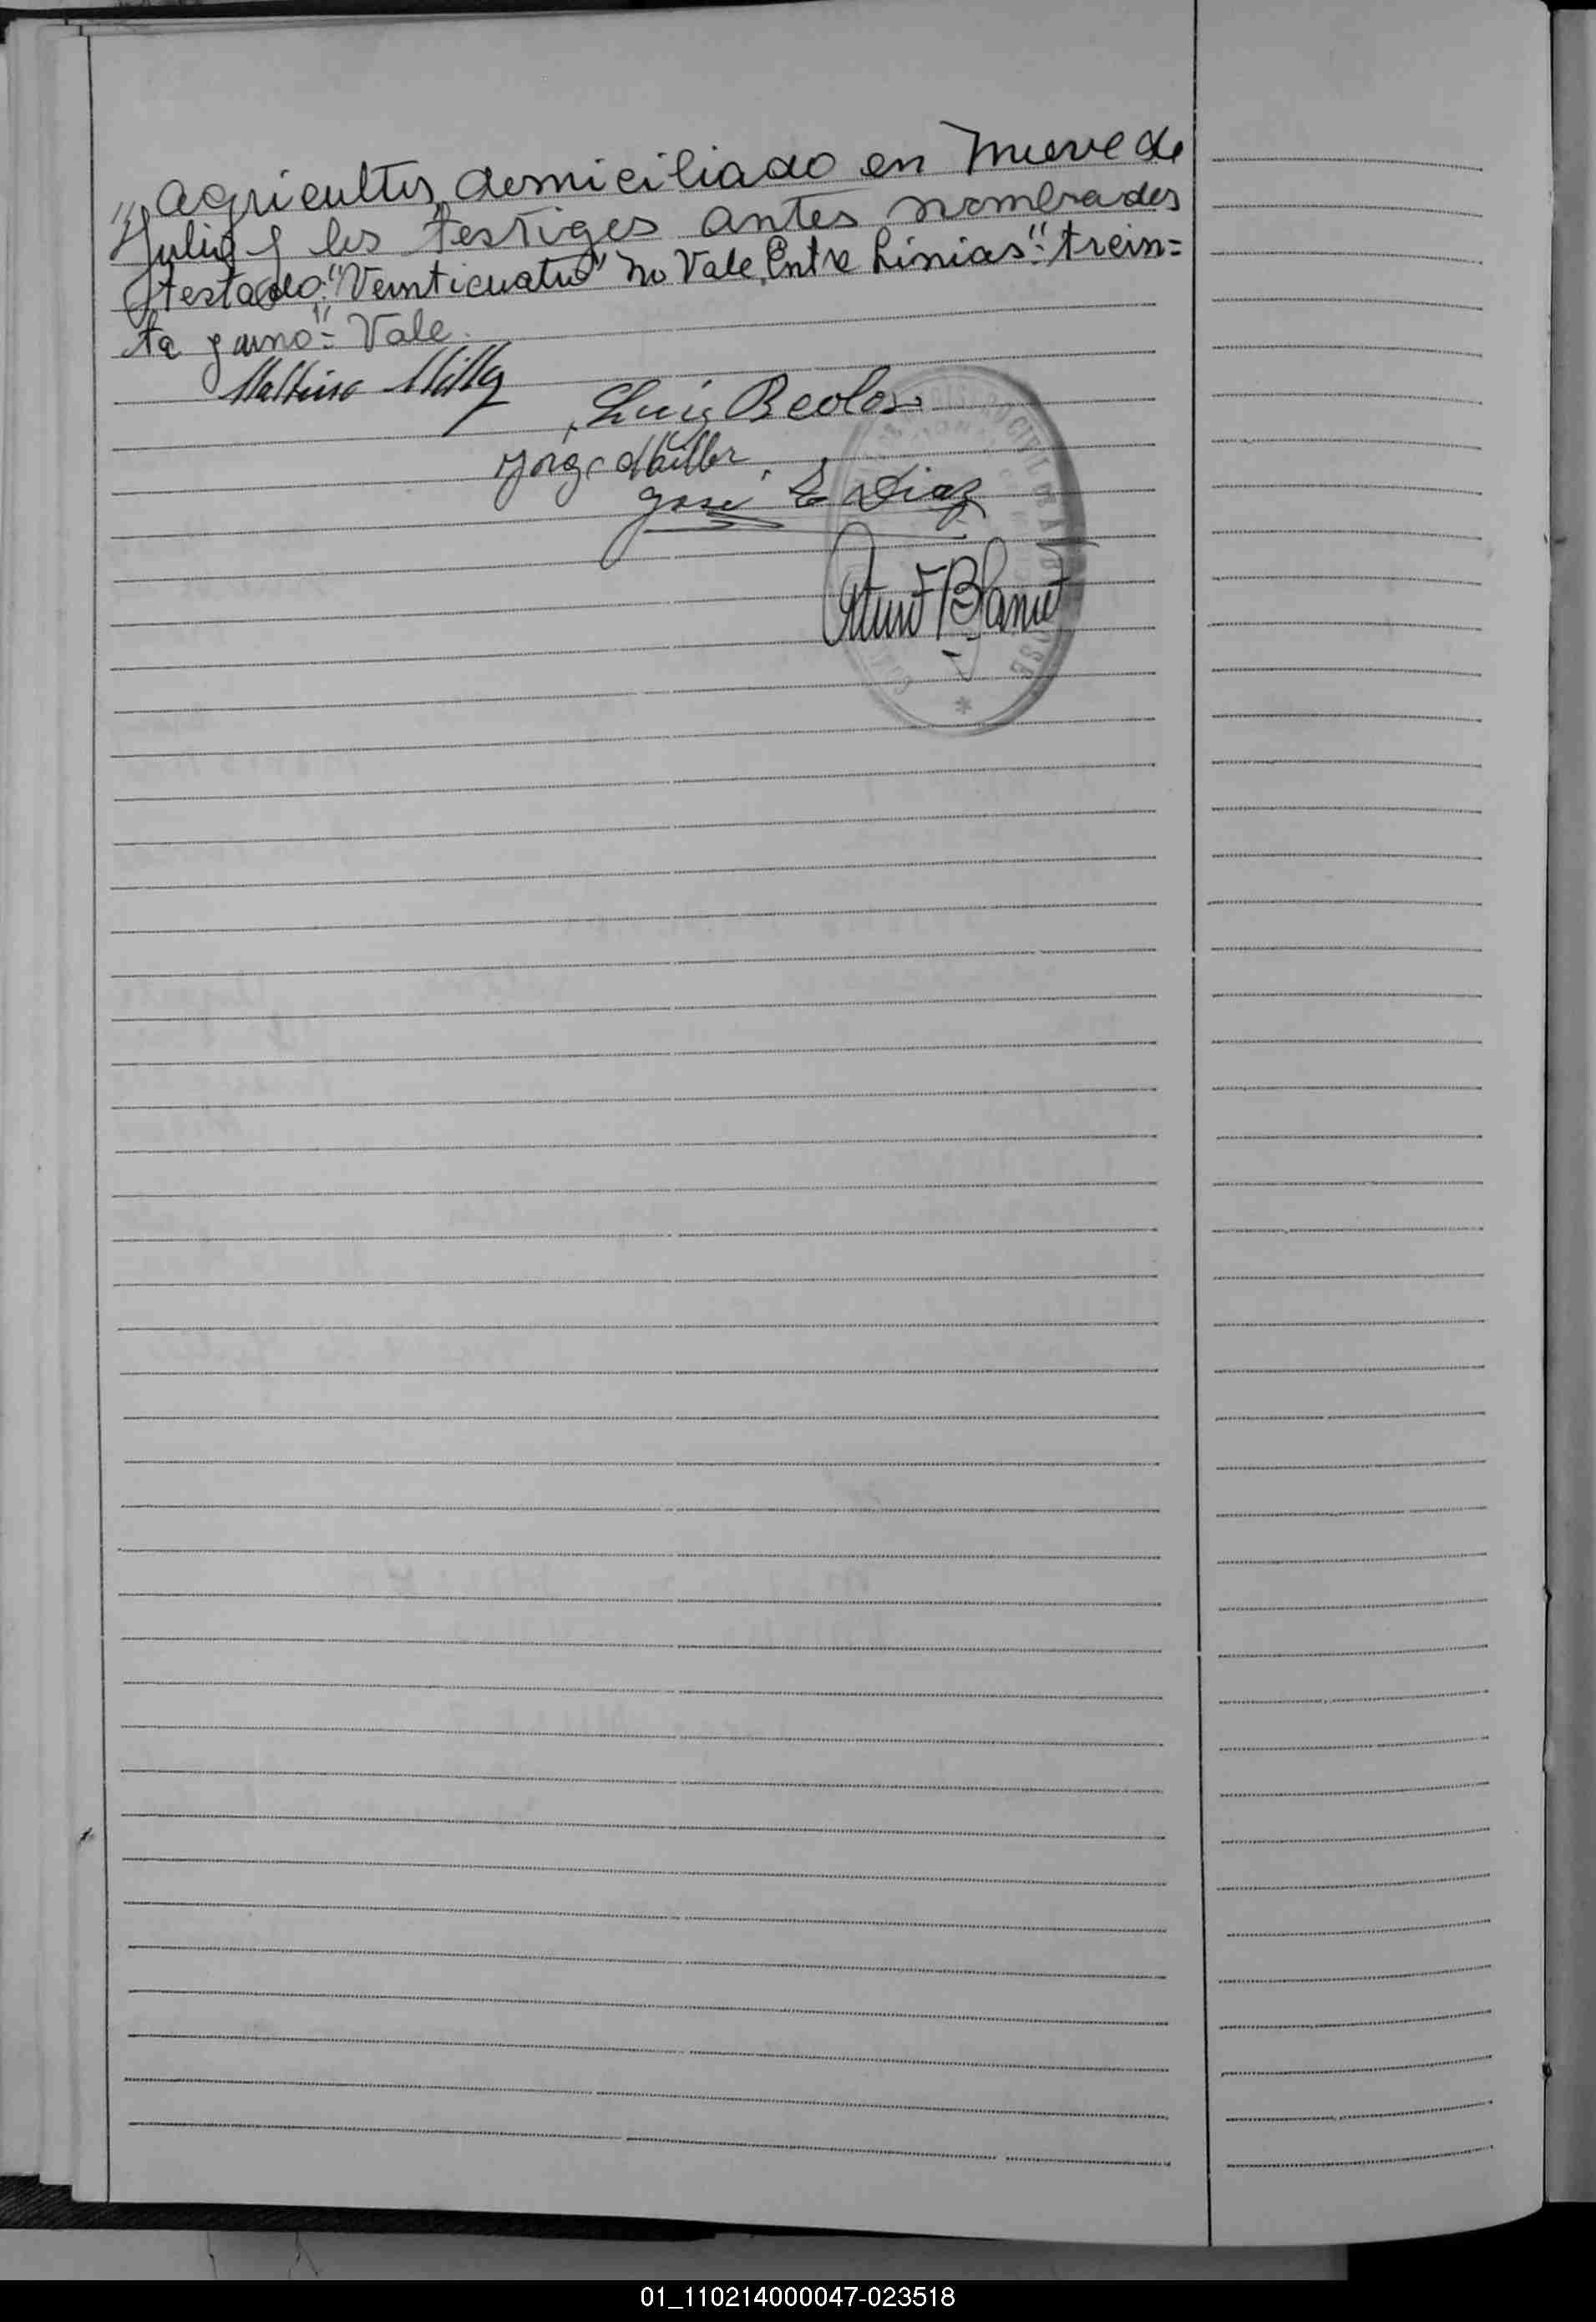 agricultor, domiciliado en Nueve de
Julio y los testigos antes nombrados
testado: "Veinticuatro" no Vale, Entre Linias": trein=
ta y uno"= Vale.
Luis Beolor
Jorge Müller
José E Diaz
Arturo Blanut
CIVIL
*
01_110214000047-023518